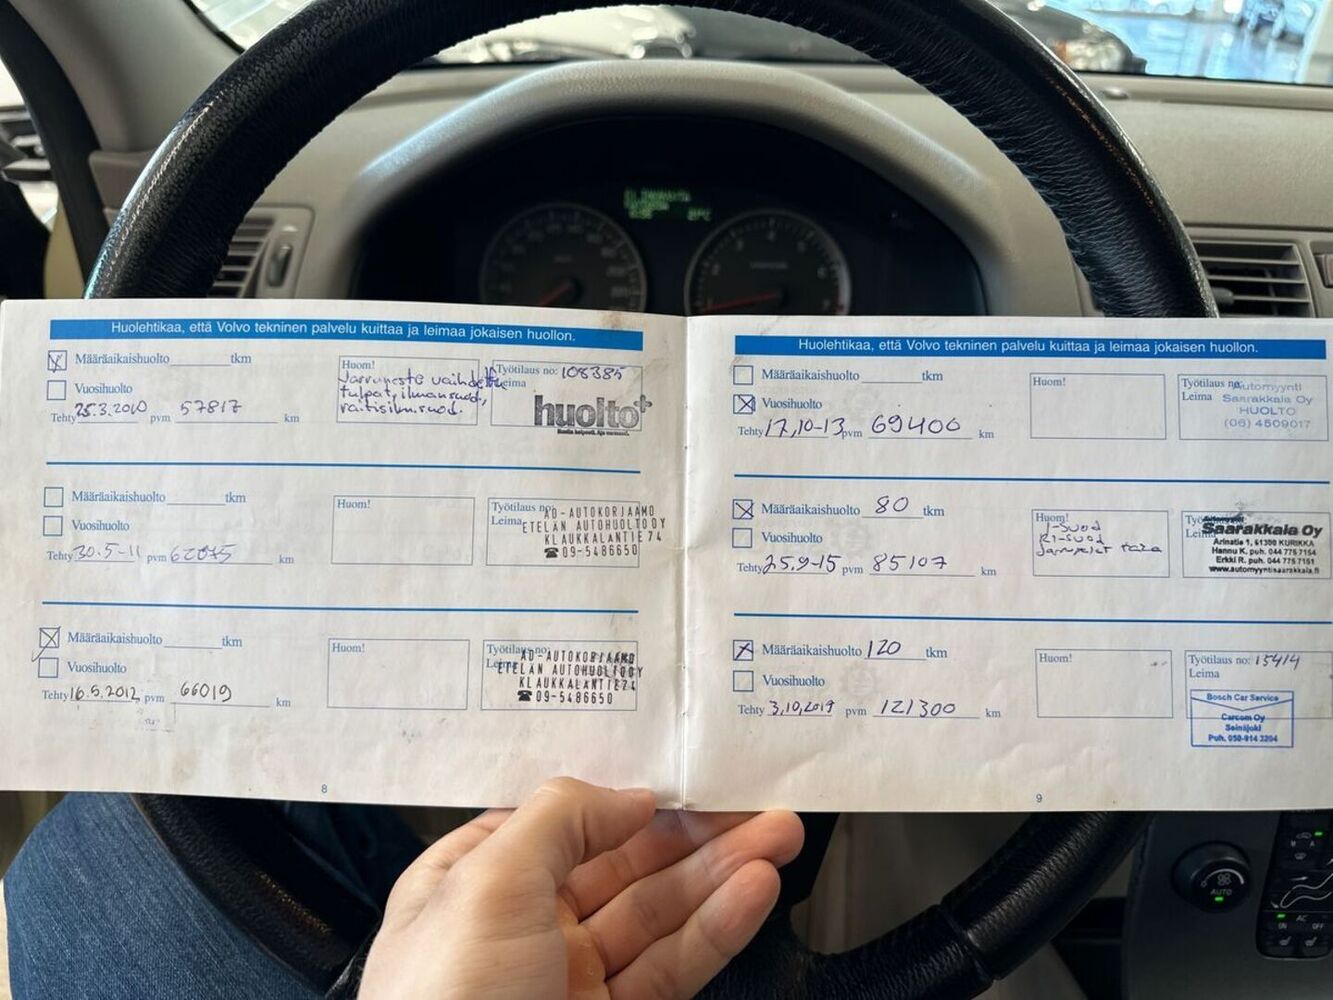 Huolehtikaa, että Volvo tekninen palvelu kuittaa ja leimaa jokaisen huollon.
Määräaikaishuolto tkm
Vuosihuolto
Tehty 25.3.2010 pvm 57817 km
Huom!
Jarruneste vaihdettu
tulpat, ilmansuod.,
raitisilm.suod.
Työtilaus no: 108385
Leima
huolto+
Määräaikaishuolto tkm
Vuosihuolto
Tehty 30.5-11 pvm km
Huom!
Työtilaus no:
Leima
AD-AUTOKORJAAMO
ETELÄN AUTOHUOLTO OY
KLAUKKALANTIE 74
☎ 09-5486650
Määräaikaishuolto tkm
Vuosihuolto
Tehty 16.5.2012 pvm 66019 km
Huom!
Työtilaus no:
Leima
AD-AUTOKORJAAMO
ETELÄN AUTOHUOLTO OY
KLAUKKALANTIE 74
☎ 09-5486650
8
Huolehtikaa, että Volvo tekninen palvelu kuittaa ja leimaa jokaisen huollon.
Määräaikaishuolto tkm
Vuosihuolto
Tehty 17,10-13 pvm 69400 km
Huom!
Työtilaus no:
Leima
Automyynti
Saarakkala Oy
HUOLTO
(06) 4509017
Määräaikaishuolto 80 tkm
Vuosihuolto
Tehty 25.9-15 pvm 85107 km
Huom!
Leima
Saarakkala Oy
Arinatie 1, 61300 KURIKKA
Hannu K. puh. 044 775 7154
Erkki R. puh. 044 775 7151
www.automyyntisaarakkala.fi
Määräaikaishuolto 120 tkm
Vuosihuolto
Tehty 3,10,2019 pvm 121300 km
Huom!
Työtilaus no: 15414
Leima
Bosch Car Service
Carcom Oy
Seinäjoki
Puh. 050-914 3204
9
AUTO
AC
ON OFF